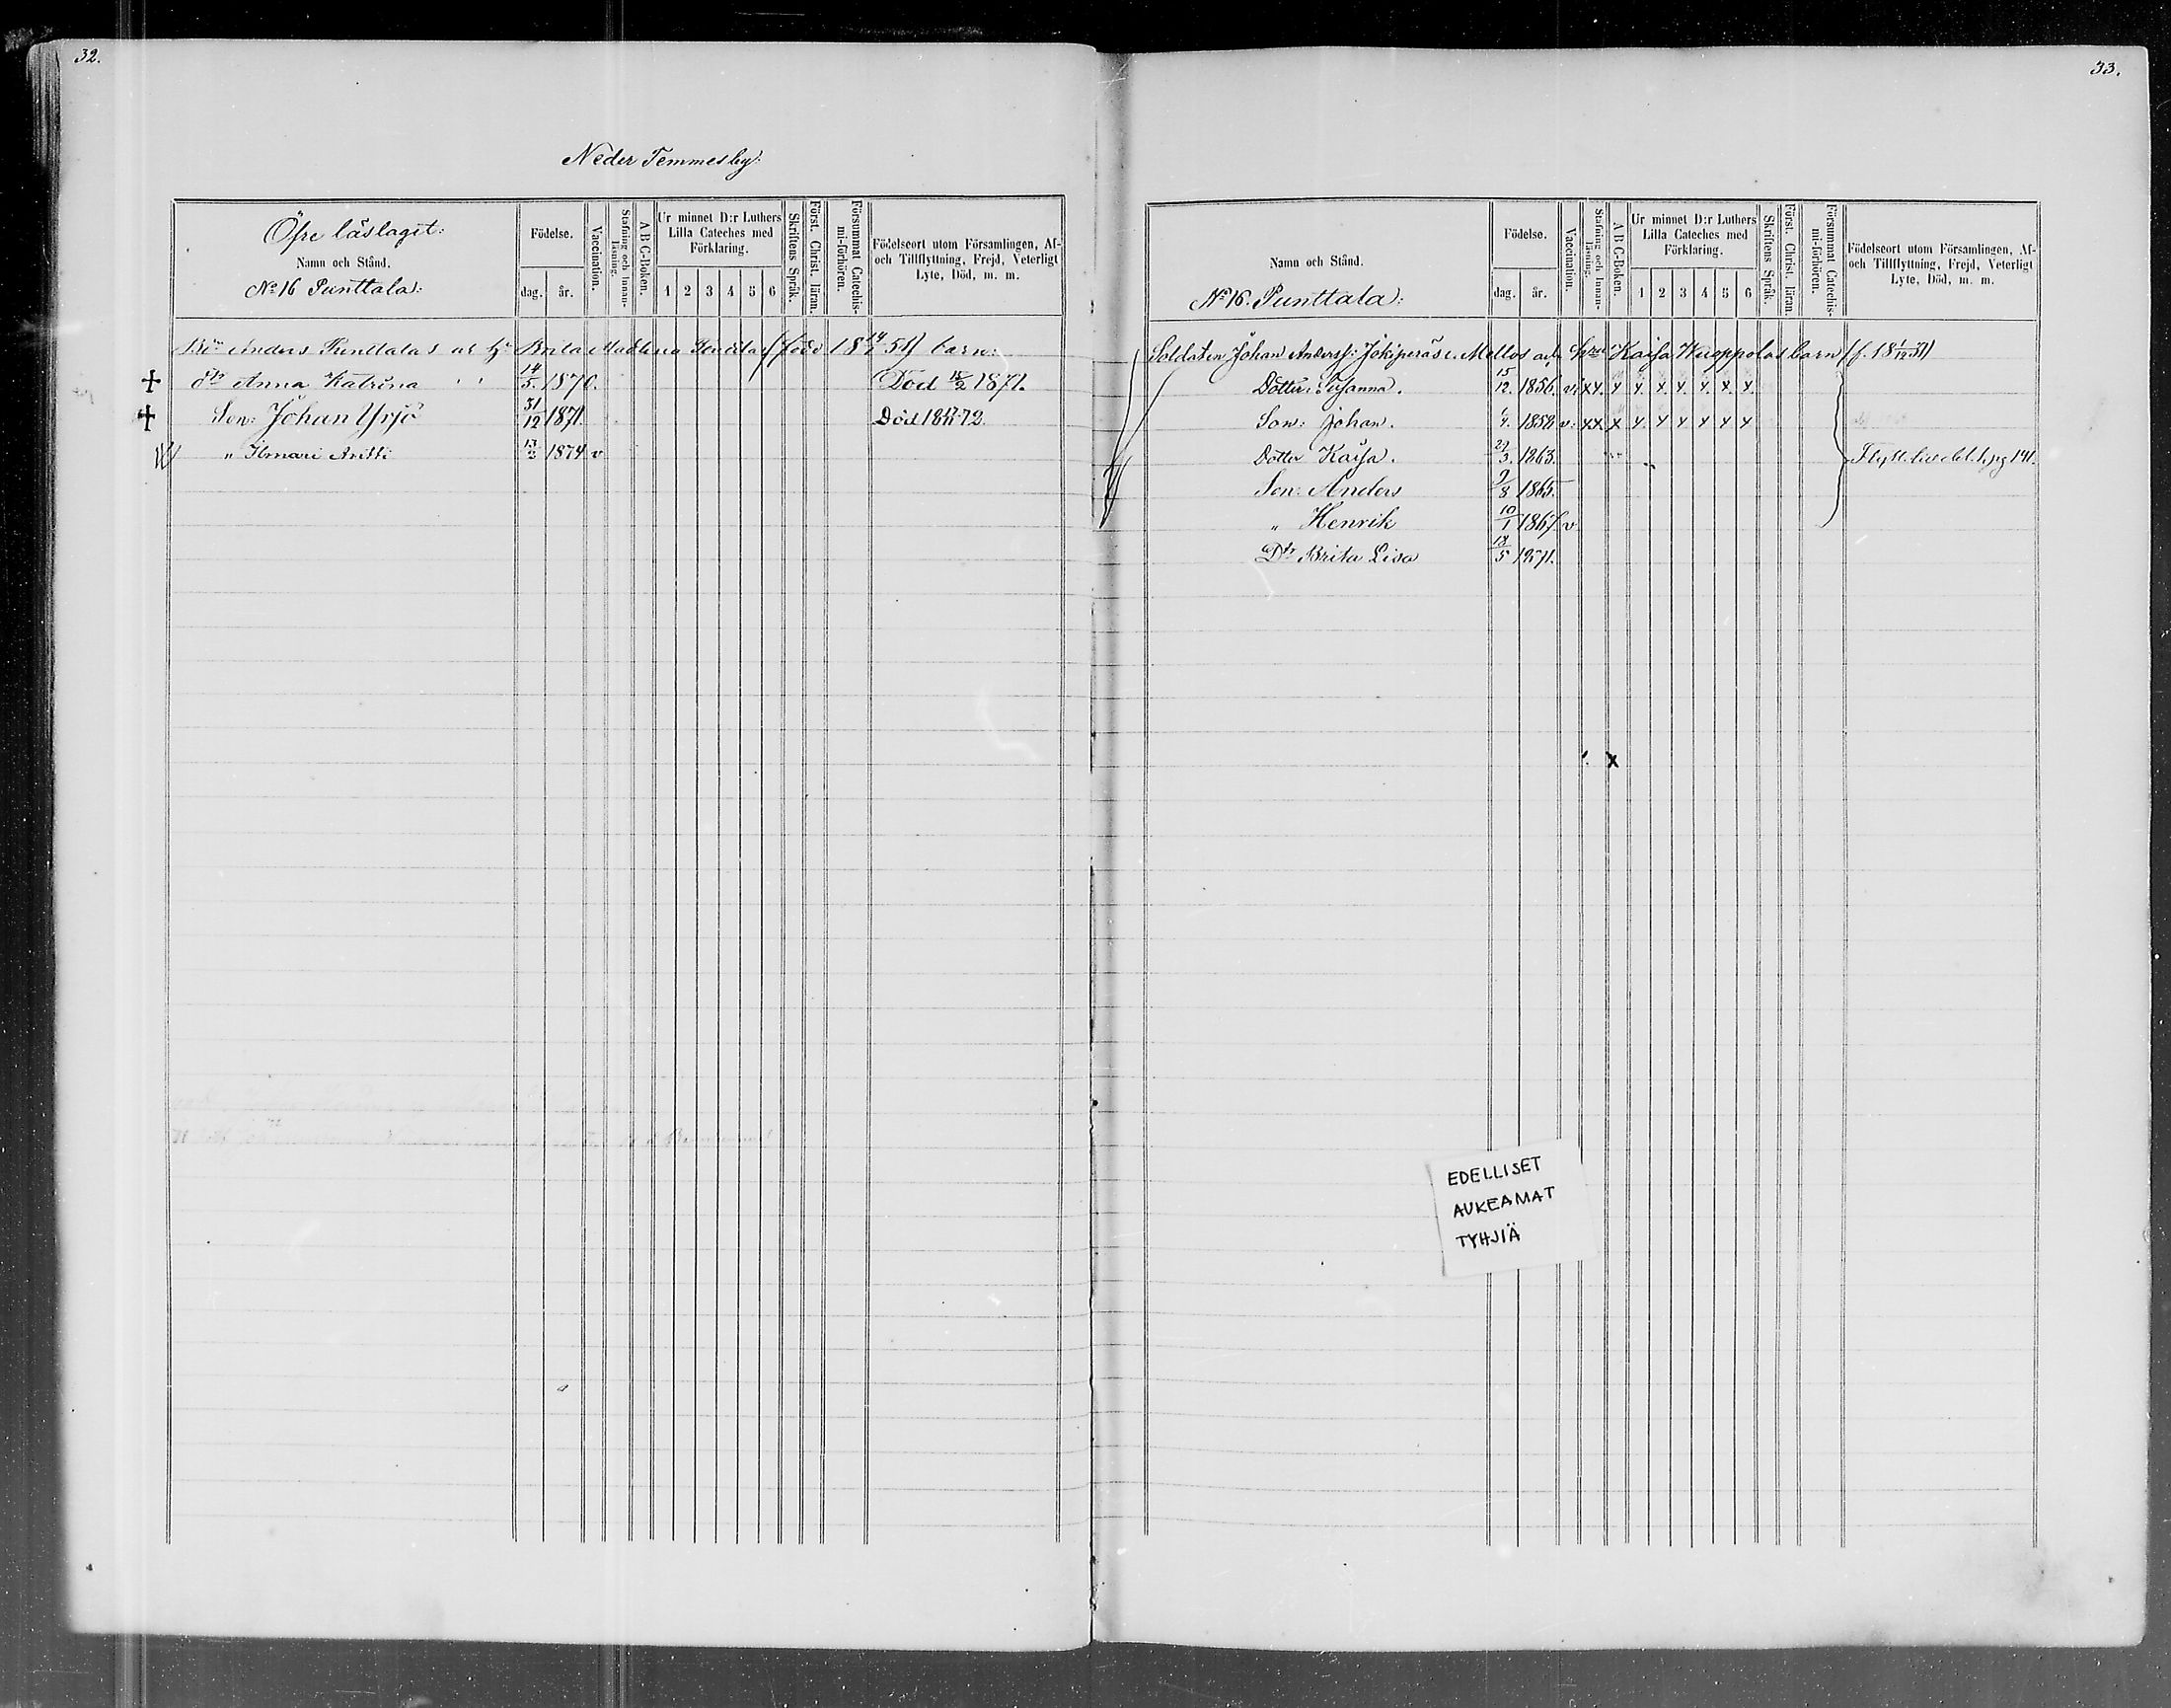 32.
Neder Temmesby:
Öfre läslaget:
Namn och Stånd.
No 16 Punttala:
Födelse.
dag. år.
Vaccination.
Stafning och Innan-läsning.
A B C-Boken.
Ur minnet D:r Luthers Lilla Cateches med Förklaring.
1 2 3 4 5 6
Skriftens Språk.
Först. Christ. läran.
Försummat Catechis-mi-förhören.
Födelseort utom Församlingen, Af- och Tillflyttning, Frejd, Veterligt Lyte, Död, m. m.
Anders Punttalas Brita (född 18 14/2 51) barn:
dtr Anna Katrina 14/5. 1870. Död 1871.
Son: Johan Yrjö 31/12 1871. Död 18 72.
" Ilmari Antti 13/2 1874 v
33.
Namn och Stånd.
No 16. Punttala:
Födelse.
dag. år.
Vaccination.
Stafning och Innan-läsning.
A B C-Boken.
Ur minnet D:r Luthers Lilla Cateches med Förklaring.
1 2 3 4 5 6
Skriftens Språk.
Först. Christ. läran.
Försummat Catechis-mi-förhören.
Födelseort utom Församlingen, Af- och Tillflyttning, Frejd, Veterligt Lyte, Död, m. m.
Soldaten Johan Anderss: Jokiperäs l. Mellos och Kaisa Kuoppolas barn (f. 18 1/12 31)
Dotter: Susanna. 15/12. 1856. v: xx. x x. x. x. x. x. x.
Son: Johan. 1858 v: xx x x x x x x x
Dotter Kaisa. 29/3. 1863. Flytt. till pag 141.
Son: Anders 9/8 1865.
" Henrik 10/1 1867. v
Dtr Brita Lisa 18/5 1871.
x
EDELLISET
AUKEAMAT
TYHJIÄ